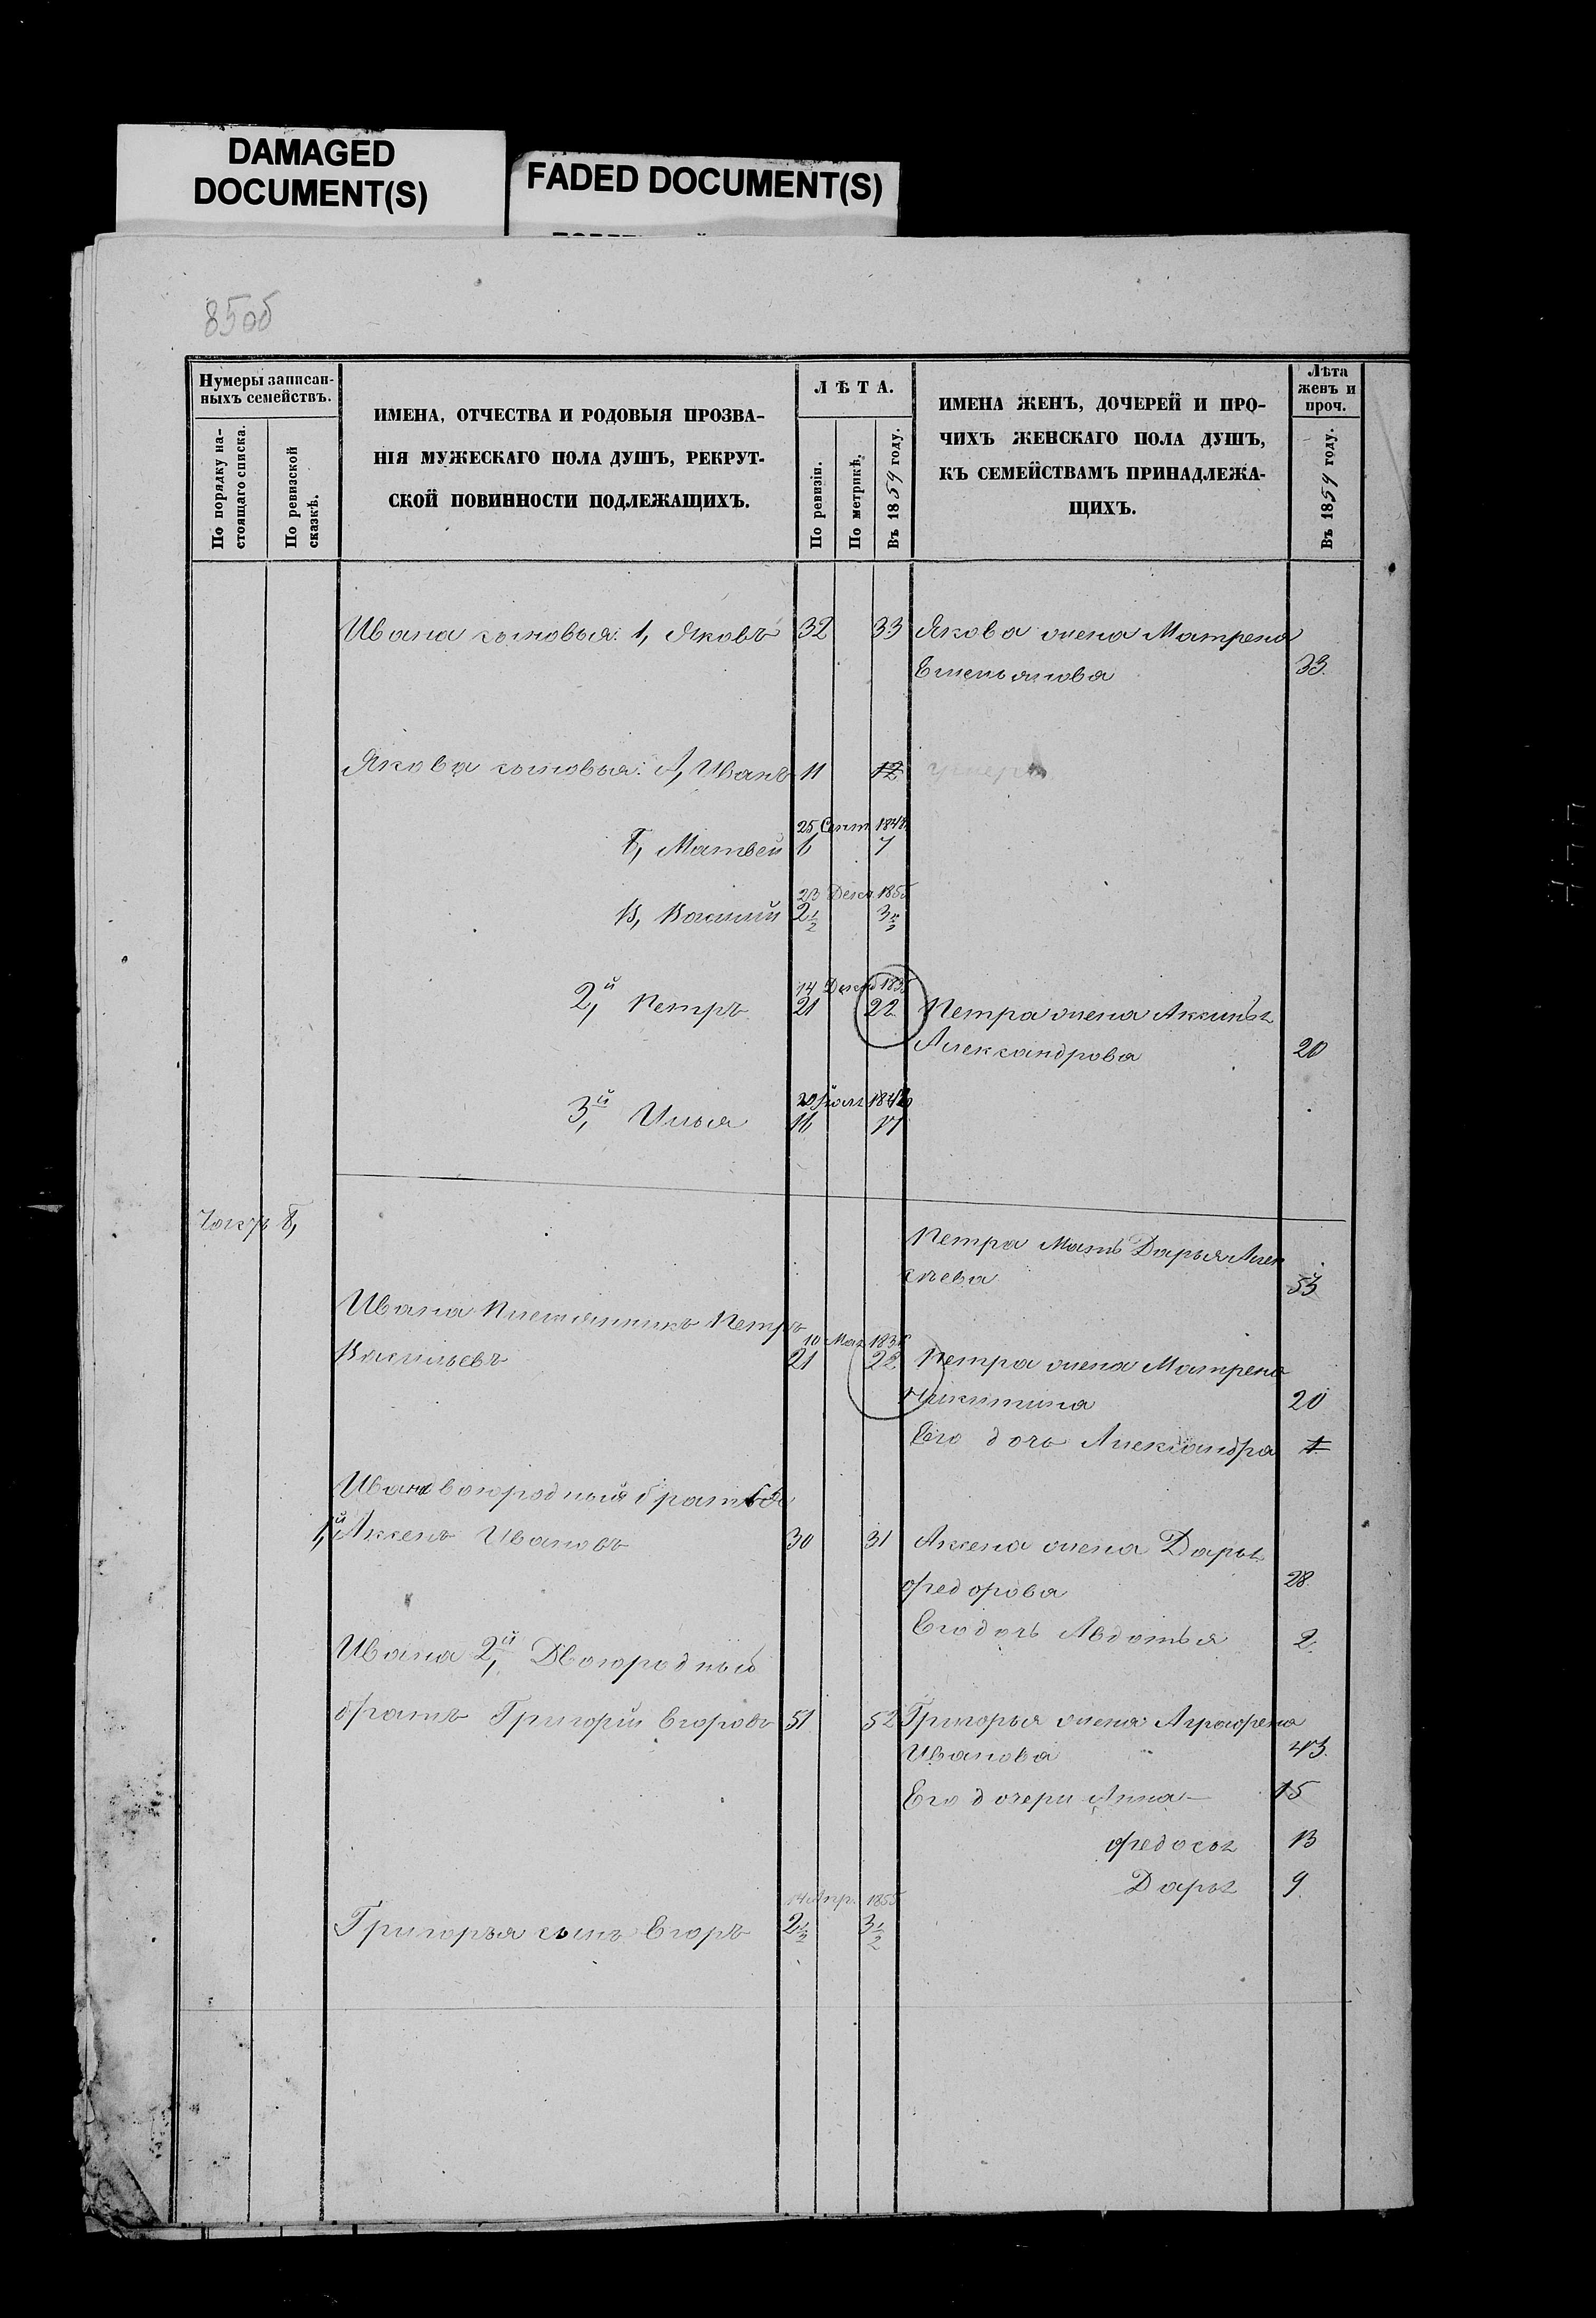 DAMAGED
DOCUMENT(S)
FADED DOCUMENT(S)
85об
Нумеры записан-
ныхъ семействъ.
По порядку на-
стоящаго списка.
По ревизской
сказкѣ.
ИМЕНА, ОТЧЕСТВА И РОДОВЫЯ ПРОЗВА-
НІЯ МУЖЕСКАГО ПОЛА ДУШЪ, РЕКРУТ-
СКОЙ ПОВИННОСТИ ПОДЛЕЖАЩИХЪ.
ЛѢТА.
По ревизіи.
По метрикѣ.
Въ 1859 году.
ИМЕНА ЖЕНЪ, ДОЧЕРЕЙ И ПРО-
ЧИХЪ ЖЕНСКАГО ПОЛА ДУШЪ,
КЪ СЕМЕЙСТВАМЪ ПРИНАДЛЕЖА-
ЩИХЪ.
Лѣта
женъ и
проч.
Въ 1859 году.
Ивана сыновья: 1, Яковъ 32 33 Якова жена Матрена
Емельянова 33.
Якова сыновья: А, Иванъ 11 12 умеръ
25 Сент. 184
Б, Матвей 6 7
23 Дек. 1855
В, Василий 2½ 3½
14 Декаб 183
2,й Петръ 21 22 Петра жена Аксинья
Александрова 20
20 Июля 184
3,й Илья 16 17
Б,
Петра Мать Дарья Алек
сѣева 53
Ивана Племянникъ Петръ
10 Мая 183
Васильевъ 21 22 Петра жена Матрена
Никитина 20
Его дочь Александра 1
Ивана двоюродный братья
1,й Аксенъ Ивановъ 30 31 Аксена жена Дарья
Федорова 28.
Его дочь Авдотья 2.
Ивана 2,й Двоюродный
братъ Григорій Егоровъ 51 52 Григорья жена Аграфена
Иванова 43.
Его дочери Анна 15
Федосья 13
Дарья 9.
14 Апр. 1855
Григорья сынъ Егоръ 2½ 3½